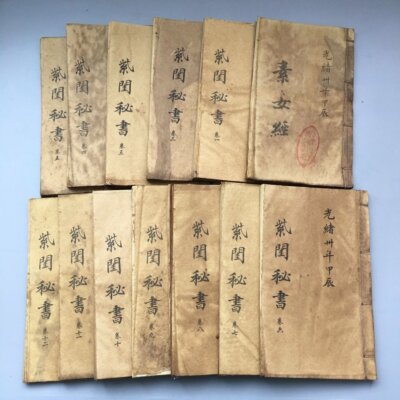 光緒卅年甲辰
素女經
紫閨秘書
卷一
紫閨秘書
卷
紫閨秘書
卷
紫閨秘書
卷
紫閨秘書
卷五
光緒卅年甲辰
紫閨秘書
卷六
紫閨秘書
卷七
紫閨秘書
卷八
紫閨秘書
卷九
紫閨秘書
卷十
紫閨秘書
卷十一
紫閨秘書
卷十二